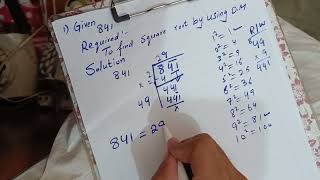 1) Given 841
Required:-
To find square root by using D.M
Solution
841
29
2 841
x 2 4
441
49 441
x
841 = 29
1² = 1
2² = 4
3² = 9
4² = 16
5² = 25
6² = 36
7² = 49
8² = 64
9² = 81
10² = 100
R/W
49
x 9
441